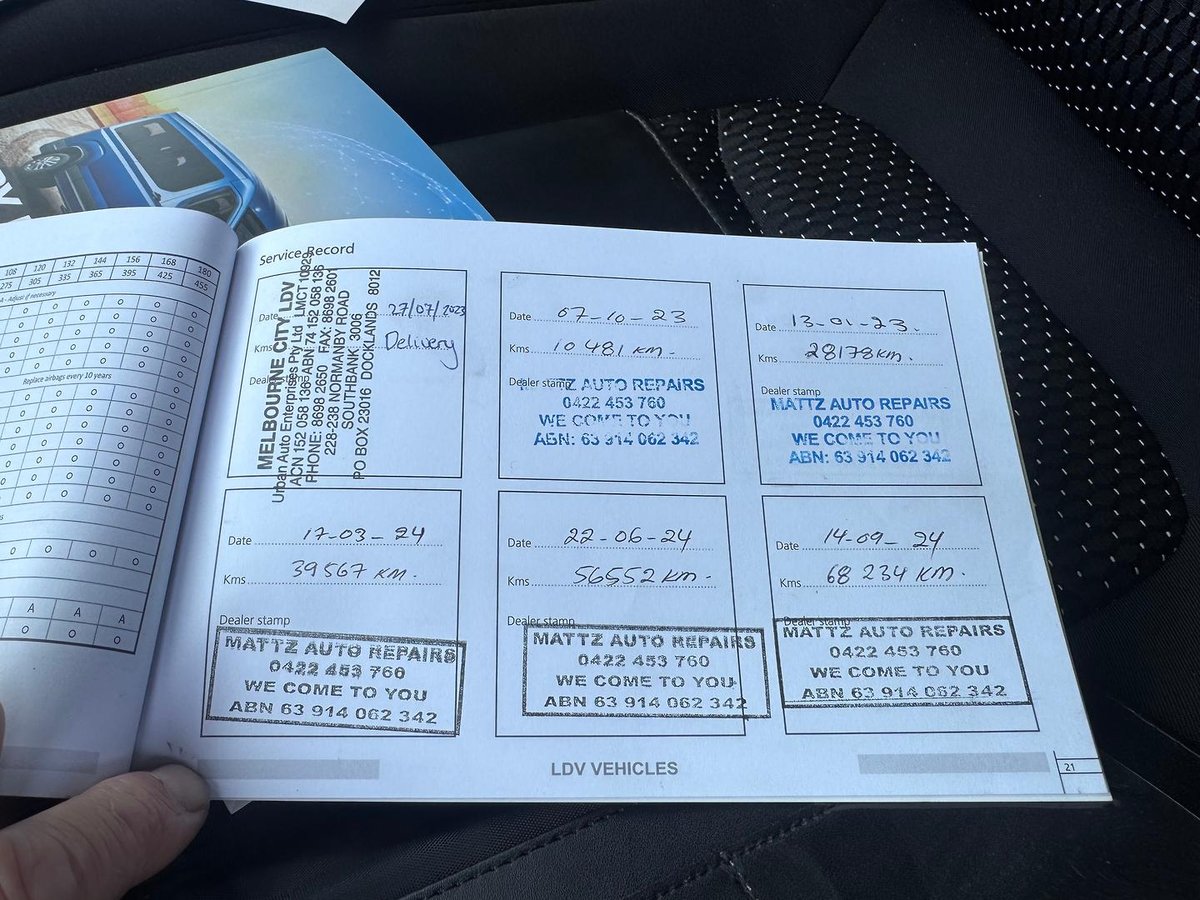 108 120 132 144 156 168 180
275 305 335 365 395 425 455
A - Adjust if necessary
Replace airbags every 10 years
A A A
Service Record
Date 27/07/2023
Kms Delivery
MELBOURNE CITY LDV
Urban Auto Enterprises Pty Ltd LMCT 10923
ACN 152 058 136 ABN 74 152 058 136
PHONE: 8698 2650 FAX: 8698 2601
228-238 NORMANBY ROAD
SOUTHBANK 3006
PO BOX 23016 DOCKLANDS 8012
Date 07-10-23
Kms 10 481 KM.
Dealer stamp
MATTZ AUTO REPAIRS
0422 453 760
WE COME TO YOU
ABN: 63 914 062 342
Date 13-01-23.
Kms 28178 KM.
Dealer stamp
MATTZ AUTO REPAIRS
0422 453 760
WE COME TO YOU
ABN: 63 914 062 342
Date 17-03-24
Kms 39567 KM.
Dealer stamp
MATTZ AUTO REPAIRS
0422 453 760
WE COME TO YOU
ABN 63 914 062 342
Date 22-06-24
Kms 56552 KM.
Dealer stamp
MATTZ AUTO REPAIRS
0422 453 760
WE COME TO YOU
ABN 63 914 062 342
Date 14-09-24
Kms 68 234 KM.
Dealer stamp
MATTZ AUTO REPAIRS
0422 453 760
WE COME TO YOU
ABN 63 914 062 342
LDV VEHICLES
21